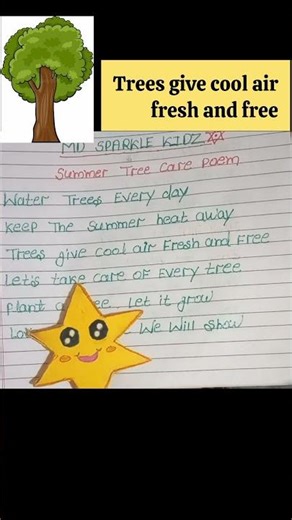 Trees give cool air
fresh and free
MD SPARKLE KIDZ
Summer Tree Care Poem
Water Trees Every day
Keep The Summer heat away
Trees give cool air Fresh and Free
Let's take care of Every tree
Plant Let it grow
We Will Show